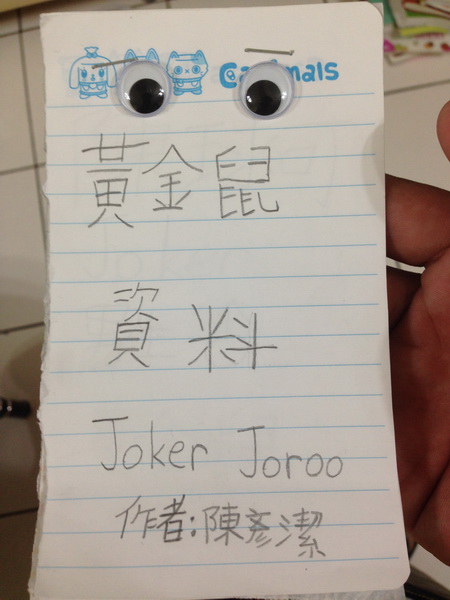 黃金鼠
資料
Joker Joroo
作者:陳彥潔